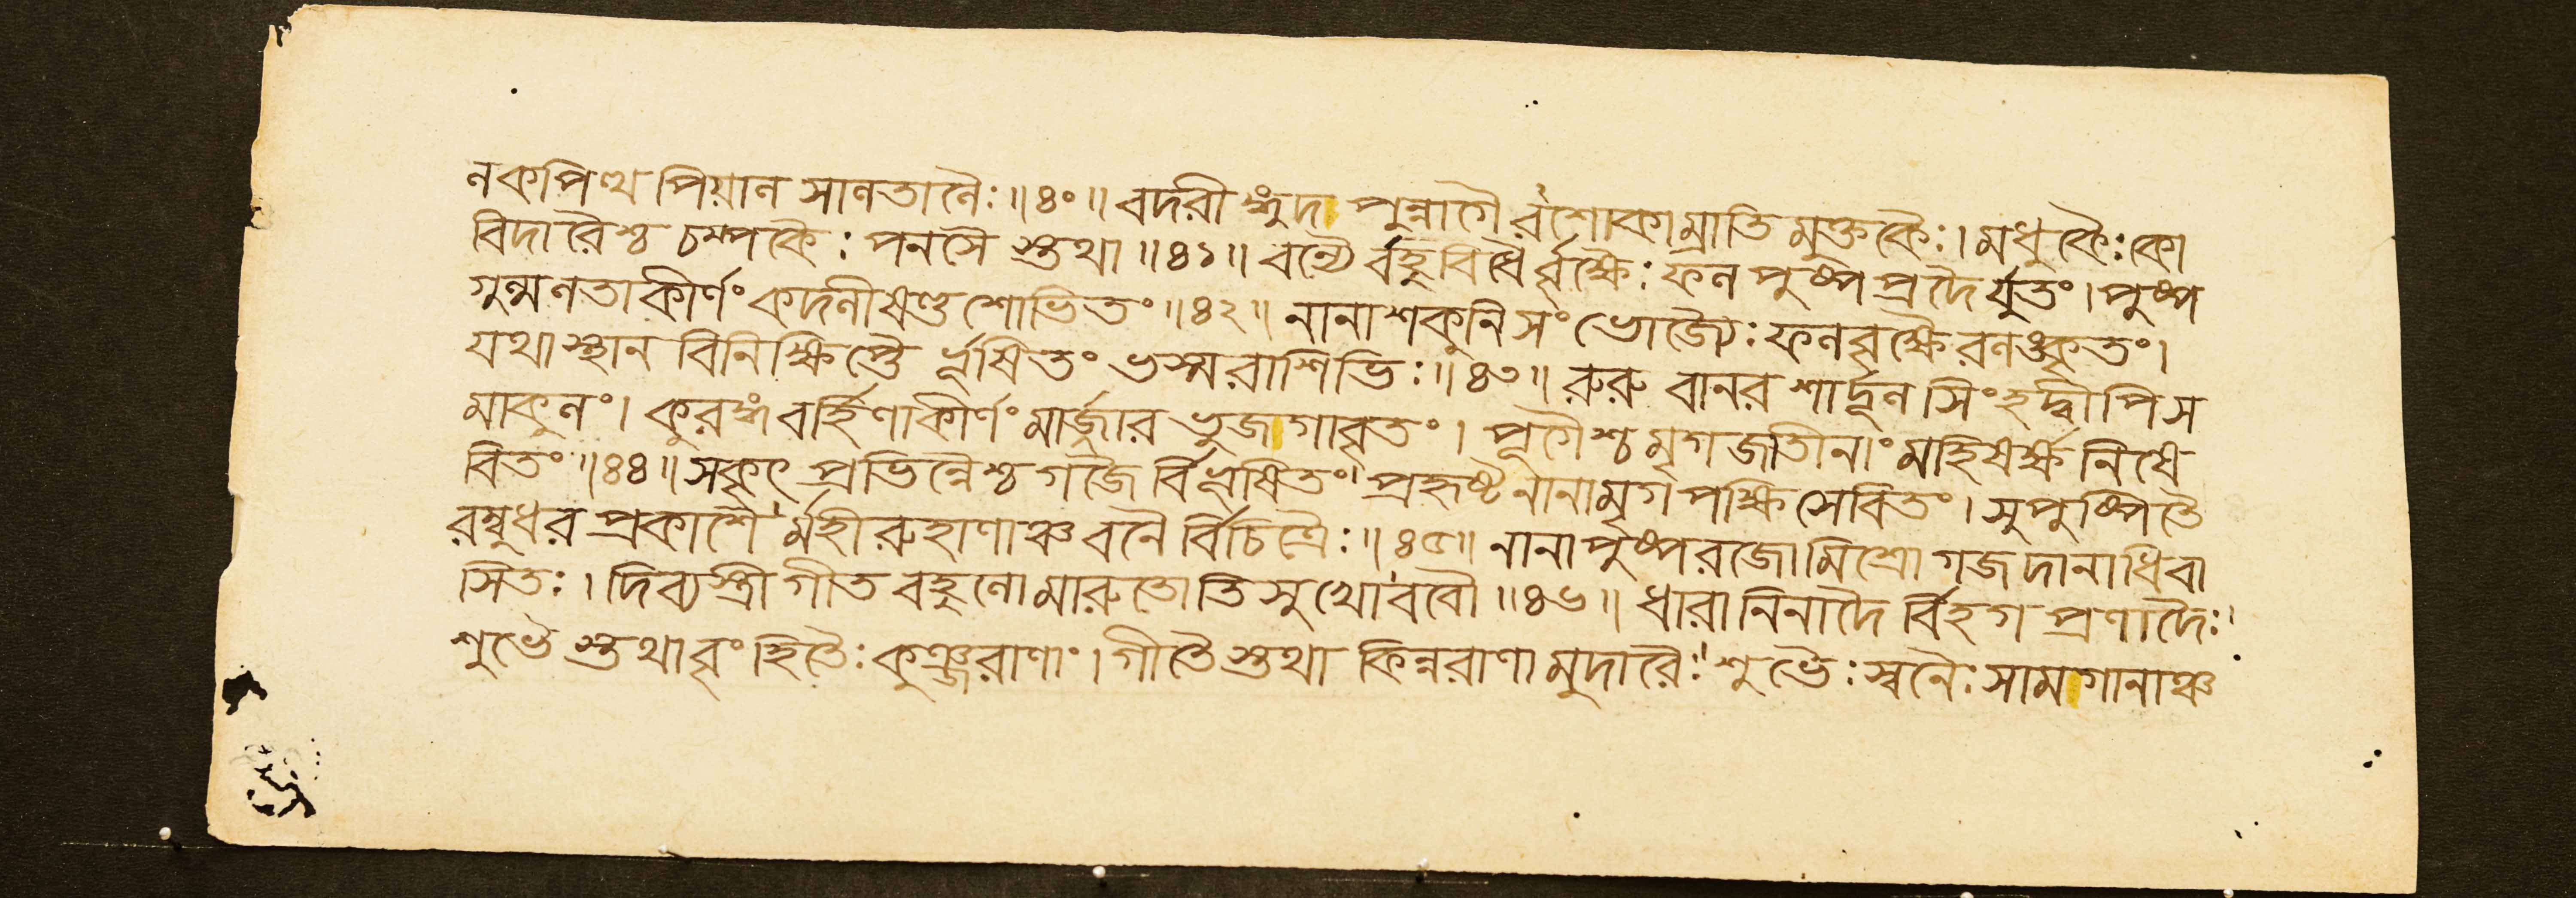 নকপিত্থপিয়ানসানতানৈঃ॥৪০॥বদরীঙ্গুদাপুন্নাগৈরশোকাম্রাতিমুক্তকৈঃ।মধুকৈঃকো
বিদারৈশ্চচম্পকৈঃপনসৈস্তথা॥৪১॥বন্যৈর্বহুবিধৈর্বৃক্ষৈঃফনপুষ্পপ্রদৈর্যুতং।পুষ্প
গুন্মনতাকীর্ণংকদনীষণ্ডশোভিতং॥৪২॥নানাশকুনিসংভোজ্যৈঃফনবৃক্ষৈরনঙ্কৃতং।
যথাস্থানবিনিক্ষিপ্তৈর্ভূষিতংভস্মরাশিভিঃ॥৪৩॥রুরুবানরশার্দূনসিংহদ্বীপিস
মাকুনং।কুরঙ্গবর্হিণাকীর্ণংমার্জ্জারভুজাগাবৃতং।পূগৈশ্চমৃগজাতীনাংমহিষর্ক্ষনিষে
বিতং॥৪৪॥সকৃৎপ্রভিন্নৈশ্চগজৈর্বিভূষিতংপ্রহৃষ্টনানামৃগপক্ষিসেবিতং।সুপুষ্পিতৈ
রম্বুধরপ্রকাশৈর্মহীরুহাণাঞ্চবনৈর্বিচিত্রৈঃ॥৪৫॥নানাপুষ্পরজোমিশ্রোগজদানাধিবা
সিতঃ।দিব্যস্ত্রীগীতবহুনোমারুতোত্তিসুখোববৌ॥৪৬॥ধারানিনাদৈর্বিহগপ্রণাদৈঃ
শুভৈস্তথাবৃংহিতৈঃকুঞ্জরাণাং।গীতৈস্তথাকিন্নরাণামুদারৈঃশুভৈঃস্বনৈঃসামগানাঞ্চ